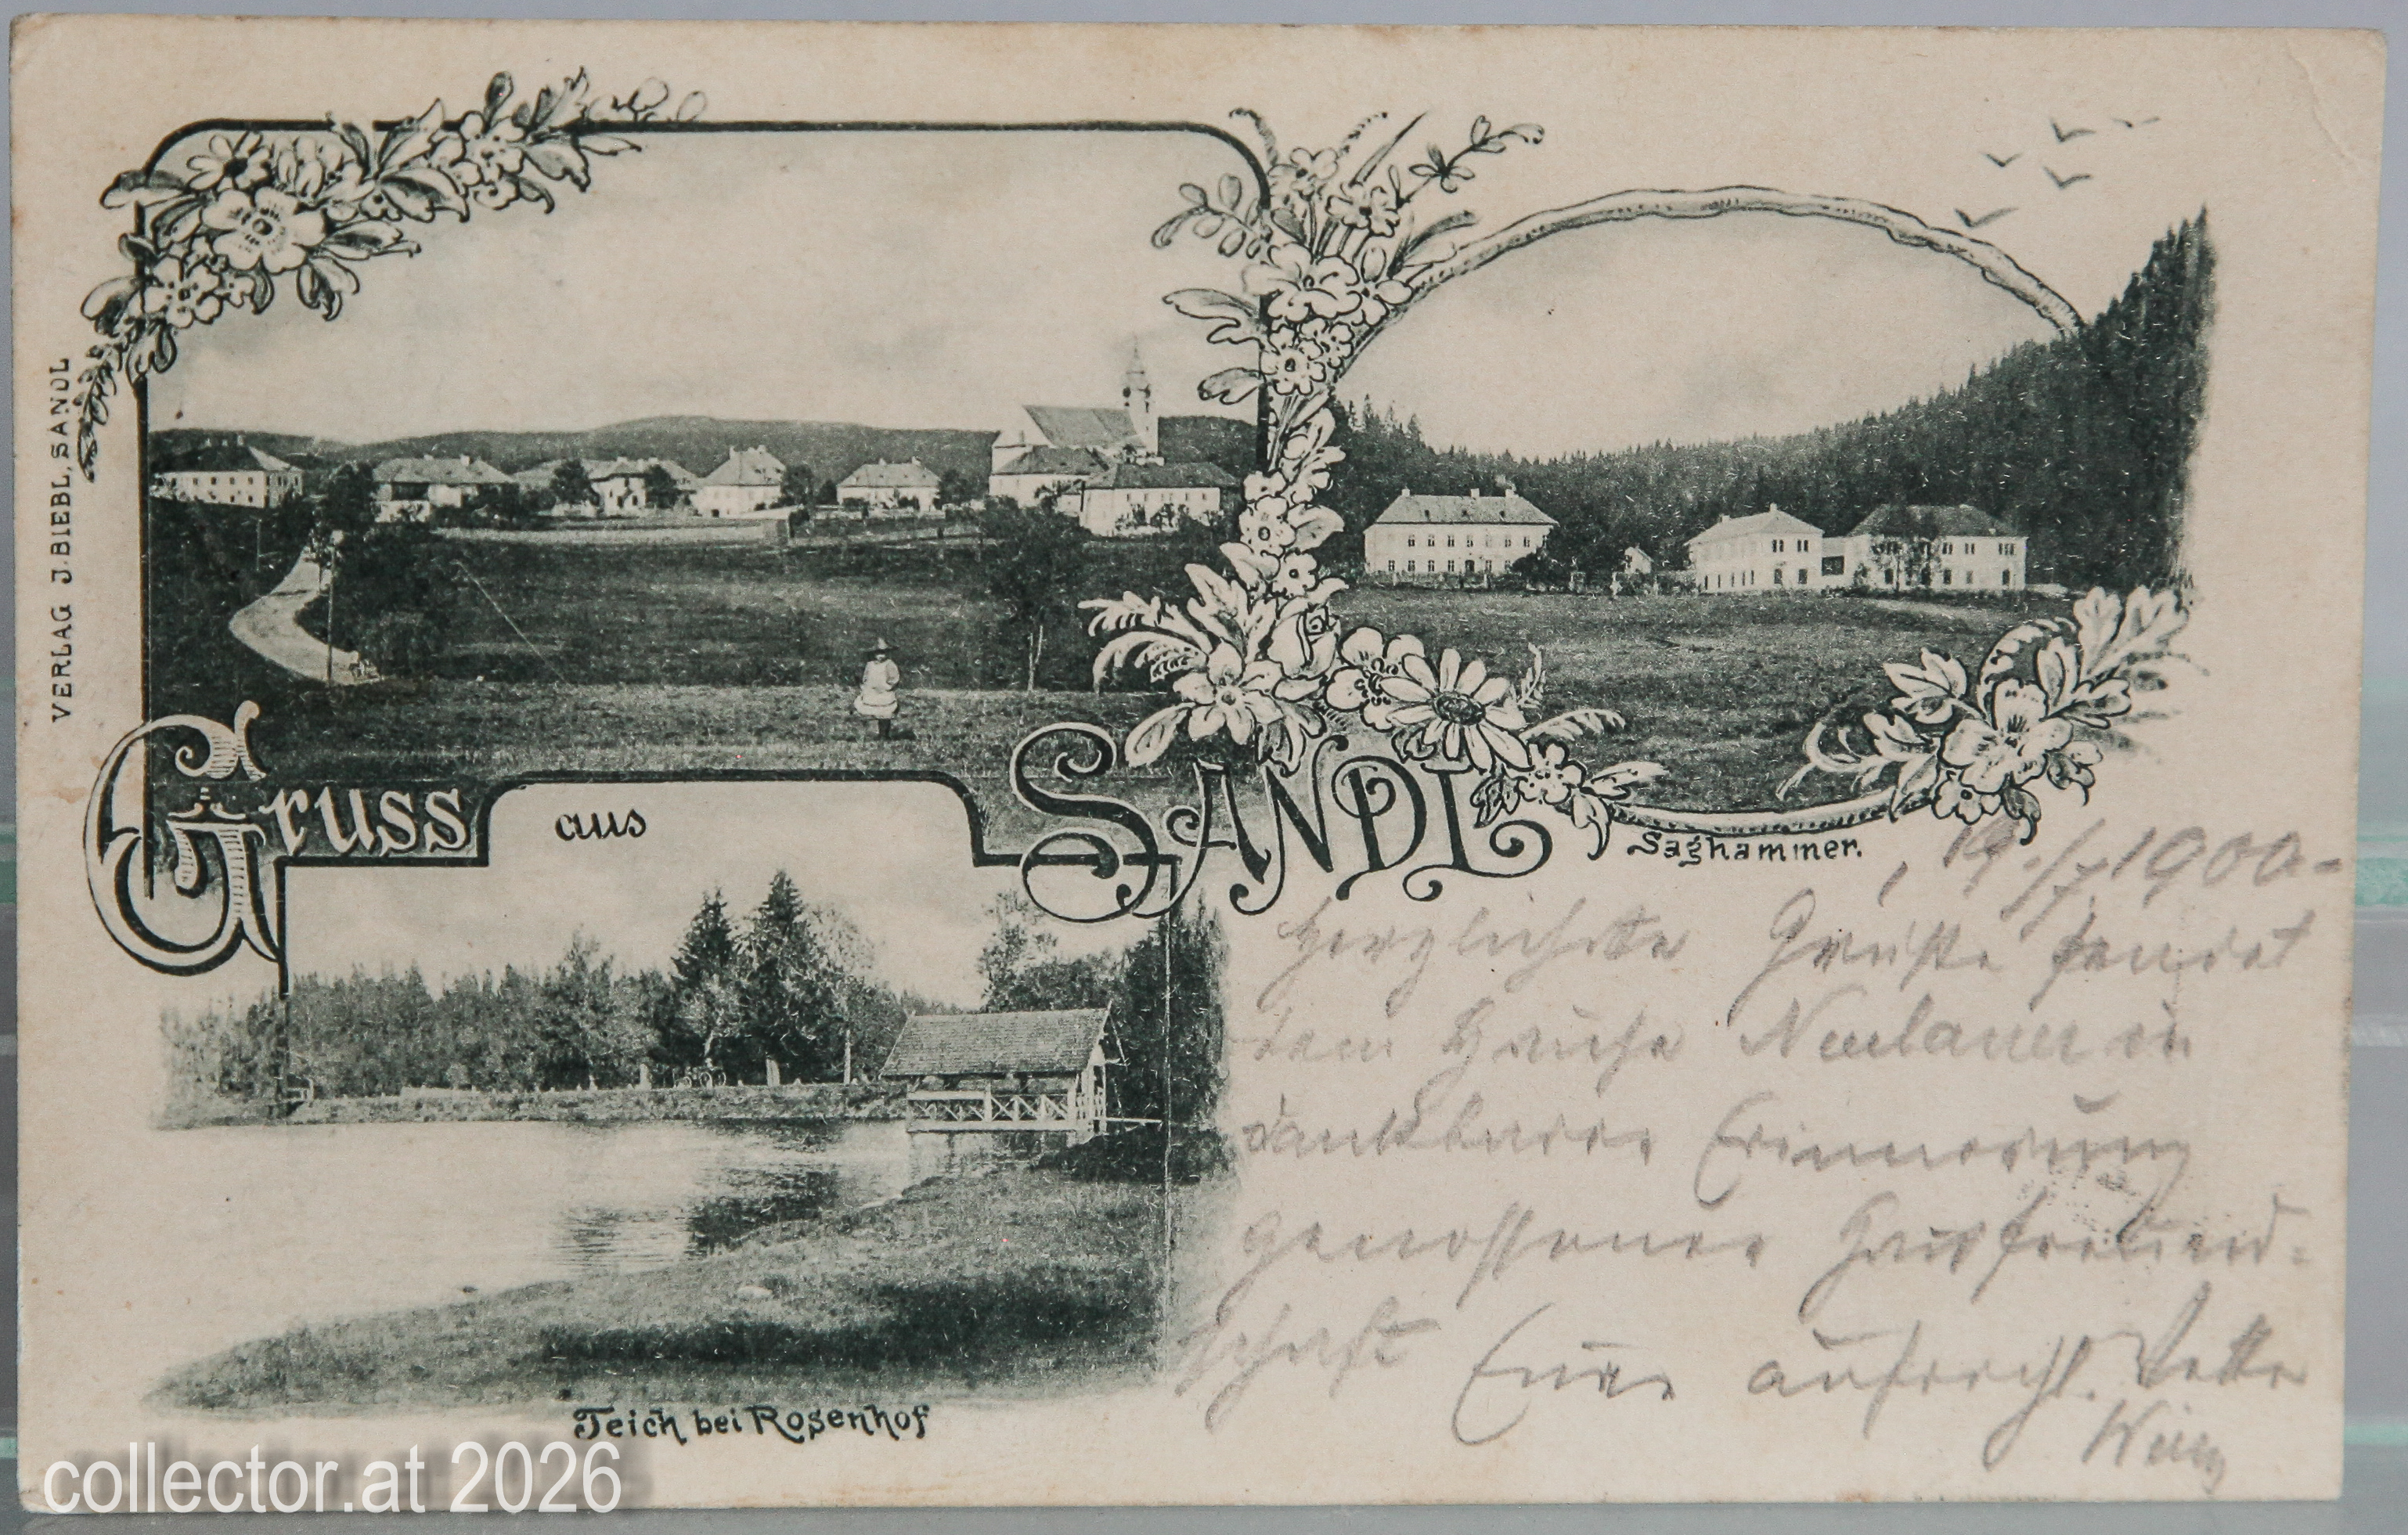 VERLAG J. BIEBL, SANDL
Gruss aus SANDL
Saghammer.
, 19./7. 1900 -
Herzlichste Grüße sendet
dem Hause Neulauer in
dankbarer Erinnerung
genossener Hausfreund-
schaft Eure aufricht.
Teich bei Rosenhof
collector.at 2026